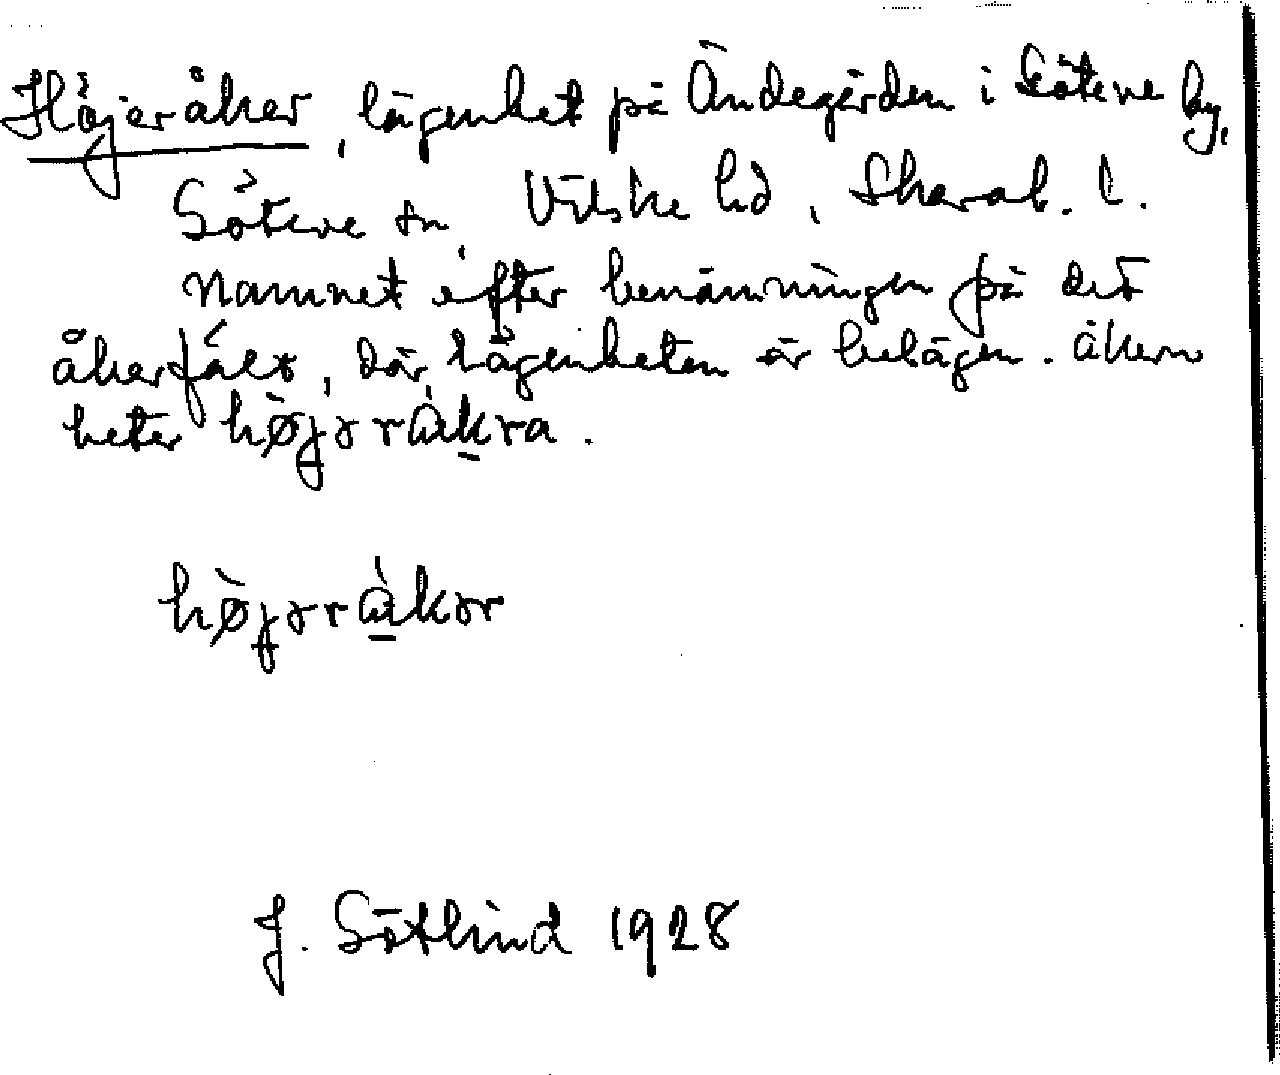 Höjeråker, lägenhet på Åndegården i Göteve by,
Göteve sn, Vilske hd, Skarab. l.
Namnet efter benämningen på det
åkerfält, där lägenheten är belägen. Åkern
heter hø̀jəråkra.
hø̀jəråkər
J. Götlind 1928